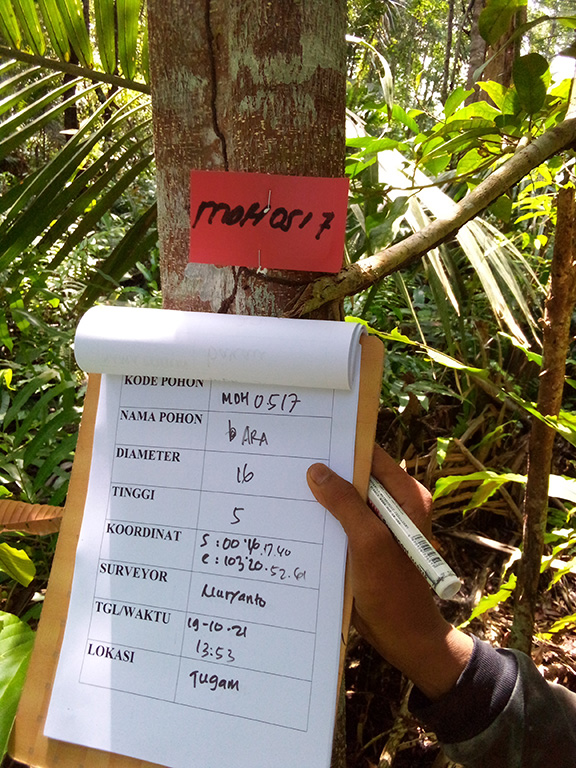 MOH 0517
KODE POHON MOH 0517
NAMA POHON bARA
DIAMETER 16
TINGGI 5
KOORDINAT S : 00°46.17.40
E : 103°20.52.61
SURVEYOR Nuryanto
TGL/WAKTU 19-10-21
13:53
LOKASI Tugam